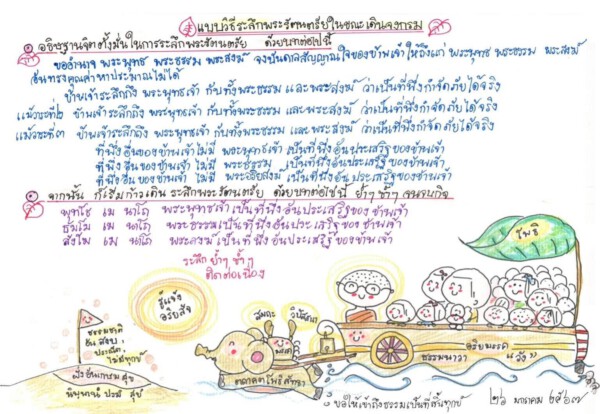 แบบวิธีระลึกพระรัตนตรัยในขณะเดินจงกรม
อธิษฐานจิตตั้งมั่นในการระลึกพระรัตนตรัย ด้วยบทต่อไปนี้
ขออำนาจ พระพุทธ พระธรรม พระสงฆ์ จงบันดาลสัญญาณใจของข้าพเจ้า ให้ถึงแก่ พระพุทธ พระธรรม พระสงฆ์
อันทรงคุณค่าหาประมาณไม่ได้
ข้าพเจ้าระลึกถึง พระพุทธเจ้า กับทั้งพระธรรม และพระสงฆ์ ว่าเป็นที่พึ่งกำจัดภัยได้จริง
แม้วาระที่๒ ข้าพเจ้าระลึกถึง พระพุทธเจ้า กับทั้งพระธรรม และพระสงฆ์ ว่าเป็นที่พึ่งกำจัดภัยได้จริง
แม้วาระที่๓ ข้าพเจ้าระลึกถึง พระพุทธเจ้า กับทั้งพระธรรม และพระสงฆ์ ว่าเป็นที่พึ่งกำจัดภัยได้จริง
ที่พึ่งอื่นของข้าพเจ้าไม่มี พระพุทธเจ้า เป็นที่พึ่งอันประเสริฐของข้าพเจ้า
ที่พึ่งอื่นของข้าพเจ้า ไม่มี พระธรรม เป็นที่พึ่งอันประเสริฐของข้าพเจ้า
ที่พึ่งอื่นของข้าพเจ้า ไม่มี พระอริยสงฆ์ เป็นที่พึ่งอันประเสริฐของข้าพเจ้า
จากนั้น ก็เริ่มก้าวเดิน ระลึกพระรัตนตรัย ด้วยบทต่อไปนี้ ย้ำๆ ซ้ำๆ จนจบกิจ
พุทโธ เม นาโถ พระพุทธเจ้าเป็นที่พึ่งอันประเสริฐของข้าพเจ้า
ธัมโม เม นาโถ พระธรรมเป็นที่พึ่งอันประเสริฐของข้าพเจ้า
สังโฆ เม นาโถ พระสงฆ์เป็นที่พึ่งอันประเสริฐของข้าพเจ้า
ระลึก ย้ำๆ ซ้ำๆ
ติดต่อเนื่อง
โพธิ
รู้แจ้ง
อริยสัจ
สมถะ วิปัสสนา
ธรรมชาติ
อันสงบ
ประณีต
ไม่มีทุกข์
ฝั่งอันเกษม สุข
นิพพานัง ปรมัง สุขัง
ตถาคตโพธิสัทธา
อริยมรรค
ธรรมนาวา "วัง"
ขอให้เข้าถึงธรรมเป็นที่สิ้นทุกข์
๒๖ มกราคม ๒๕๖๗